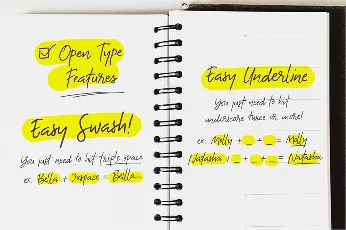 Open Type
Features
Easy Swash!
You just need to hit triple space
ex: Bella + 3xspace = Bella
Easy Underline
You just need to hit
underscore twice or more!
ex: Molly + _ + _ = Molly
Natasha + _ + _ + _ = Natasha